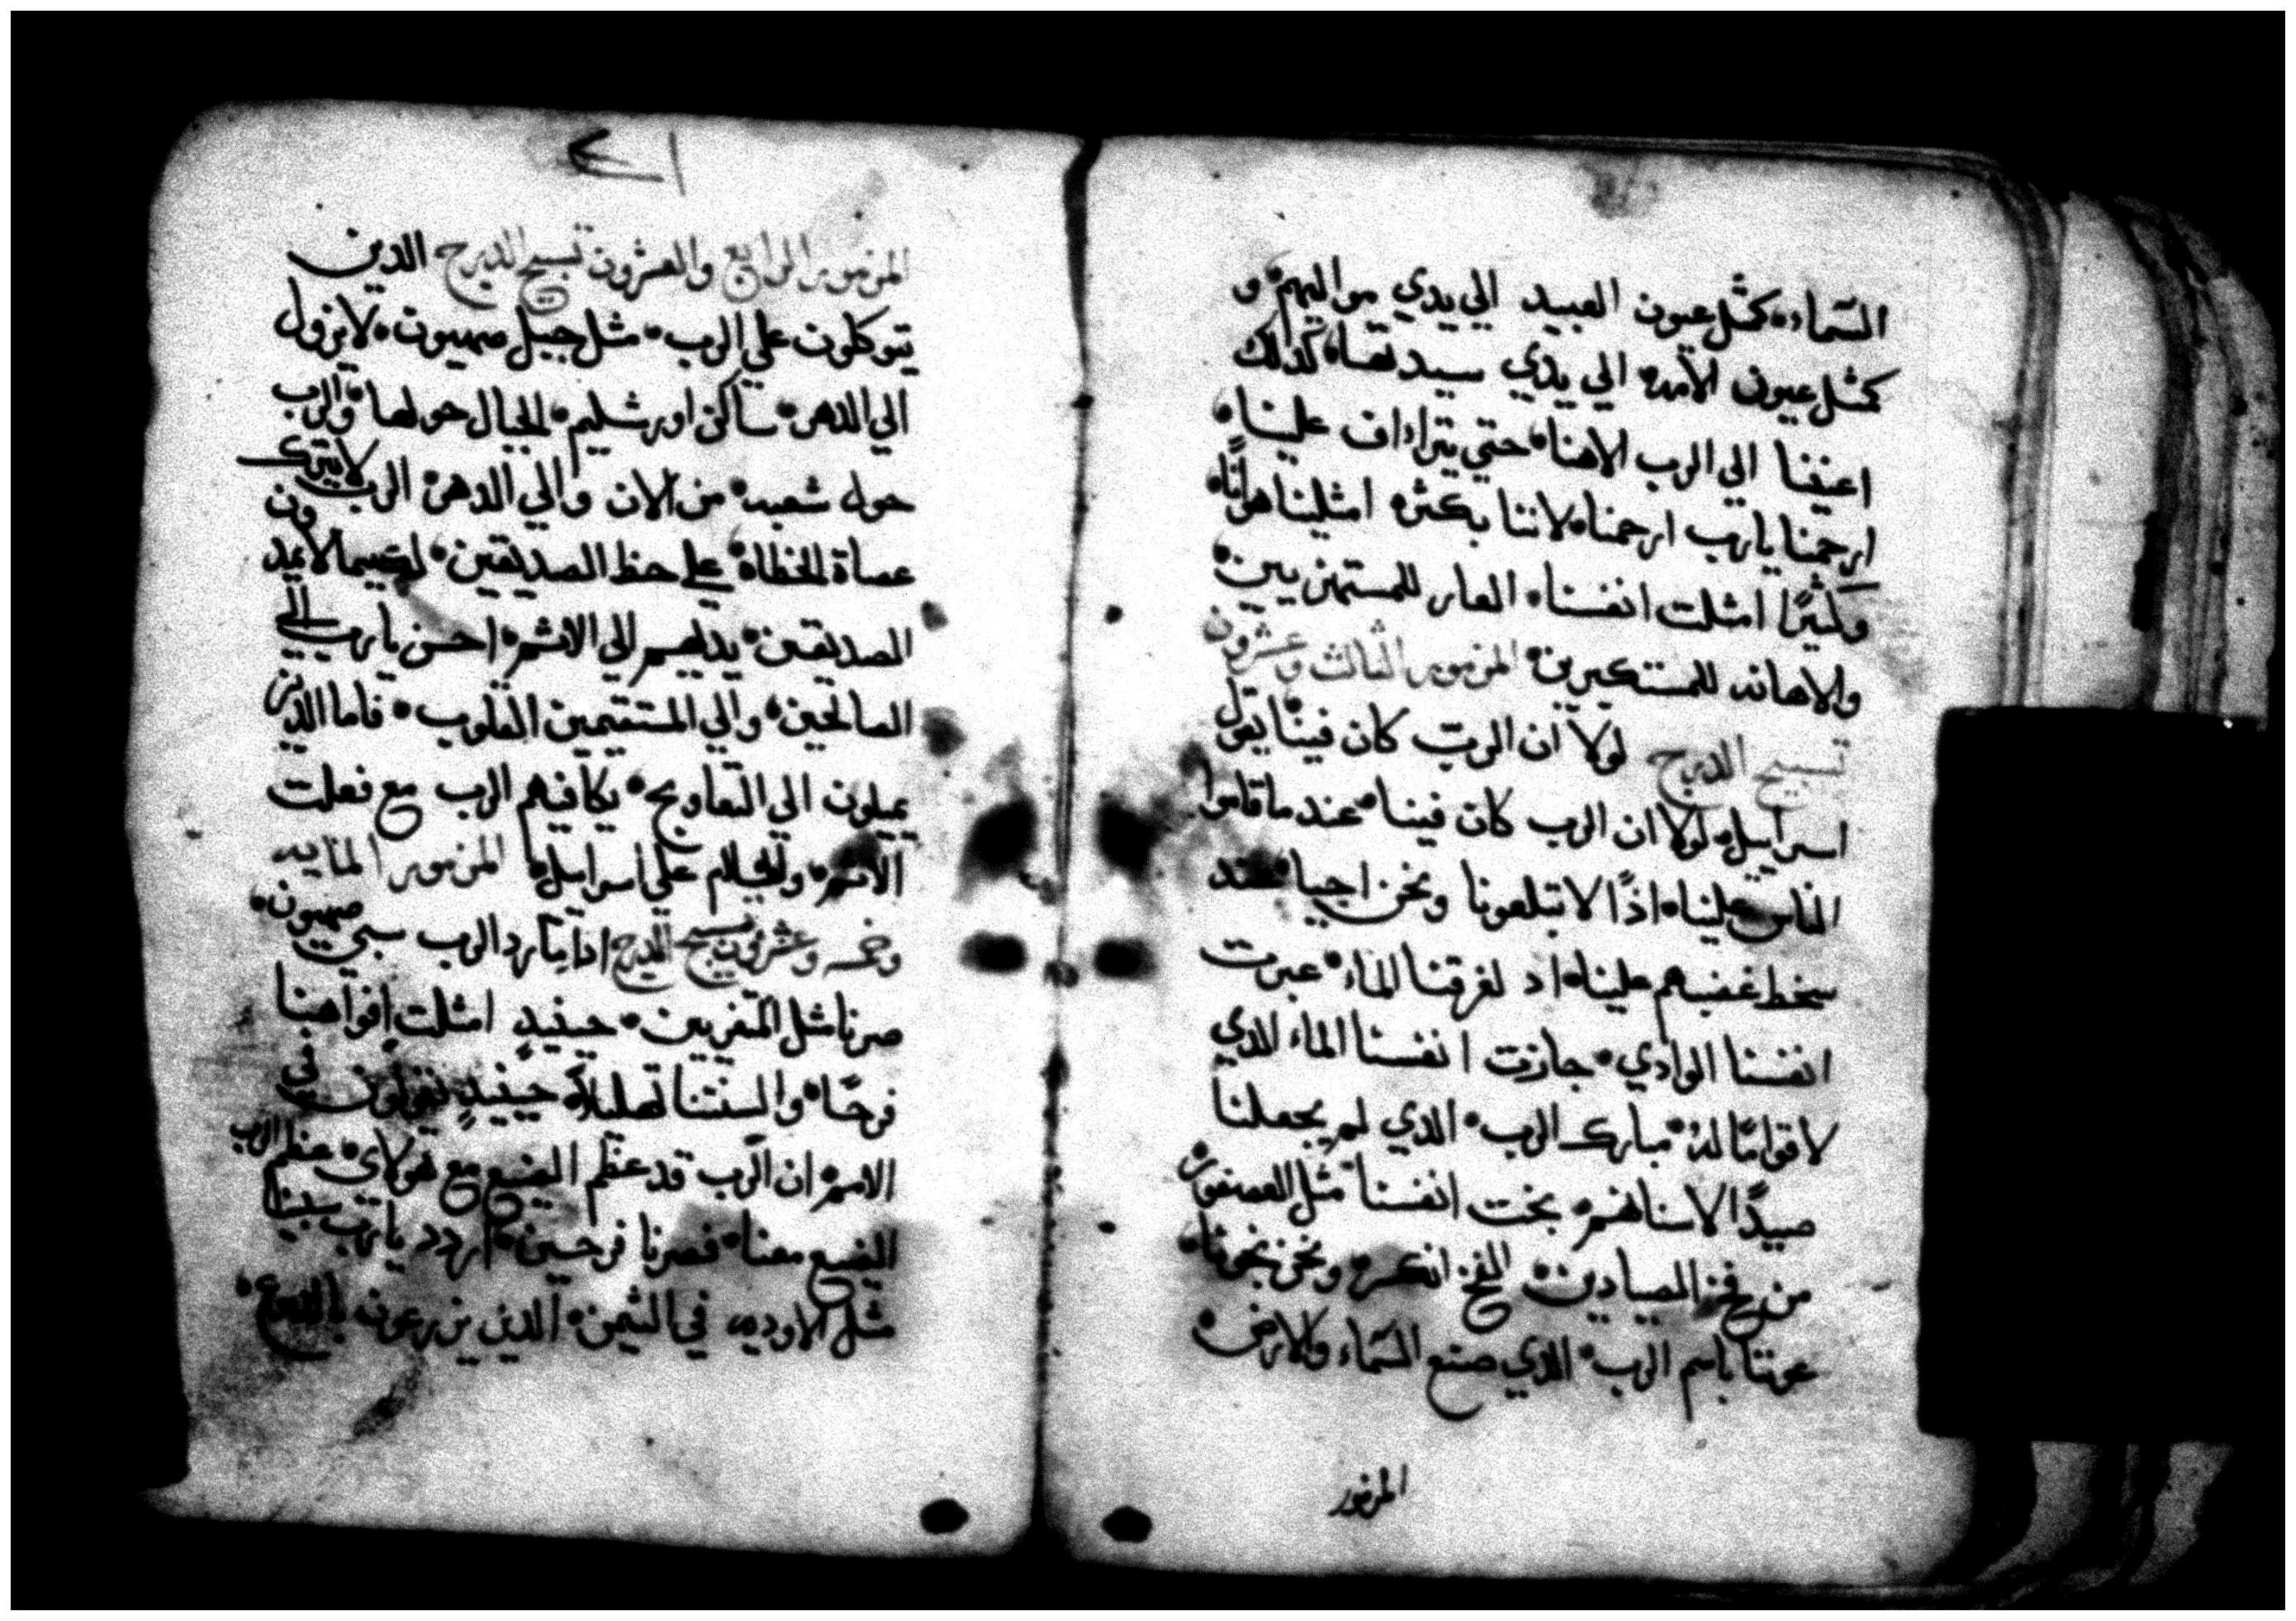 السماء، كمثل عيون العبيد الي يدي مواليهم، و
كمثل عيون الامه، الي يدي سيدتها، كذلك
اعيننا الي الرب الاهنا، حتي يتراءاف علينا،
ارحمنا يارب ارحمنا، لاننا بكثره امثلينا هوانًا،
وكثيرًا امثلت انفسنا، العار للمستهزيين،
والاهانه للمستكبرين، المزمور الثالث وعشرون
تسبيح الدرج لولا ان الرب كان فينا، يقول
اسراييل، لولا ان الرب كان فينا، عند ما قاموا
الناس علينا، اذًا لابتلعونا ونحن احيا، عند
سخط غضبهم علينا، اد لغرقنا الماء، عبرت
انفسنا الوادي، جازت انفسنا الماء الدي
لا قوامًا له، مبارك الرب، الدي لم يجعلنا
صيدًا لاسنانهم، نجت انفسنا مثل العصفور،
من فخ الصيادين، الفخ انكسر، ونحن نجونا،
عوننا باسم الرب، الدي صنع السماء والارض،
المزمور
المزمور الرابع والعشرون تسبيح الدرج الدين
يتوكلون علي الرب، مثل جبل صهيون، لا يزول
الي الدهر، ساكن اورشليم، الجبال حولها، والرب
حول شعبه، من الان والي الدهر، الرب لا يترك
عصاة الخطاة، علي حظ الصديقين، لكيما لا يمدون
الصديقين، يديهم الي الاثم، احسن يارب الي
الصالحين، والي المستقيمين القلوب، فاما الدين
يميلون الي التعاويج، يكافيهم الرب مع فعلت
الاثم، والسلام علي اسراييل، المزمور المايه
وخمسه وعشرون تسبيح الدرج اداما رد الرب سبي صهيون،
صرنا مثل المتعزيين، حينيدٍ امثلت افواهنا
فرحًا، والسنتنا تهليلاً، حينيدٍ يقولون في
الامم، ان الرب قد عظم الصنيع مع هولاي، عظم الرب
الصنيع معنا، فصرنا فرحين، اردد يارب سبينا
مثل الاوديه في التيمن، الدين يزرعون بالدموع،